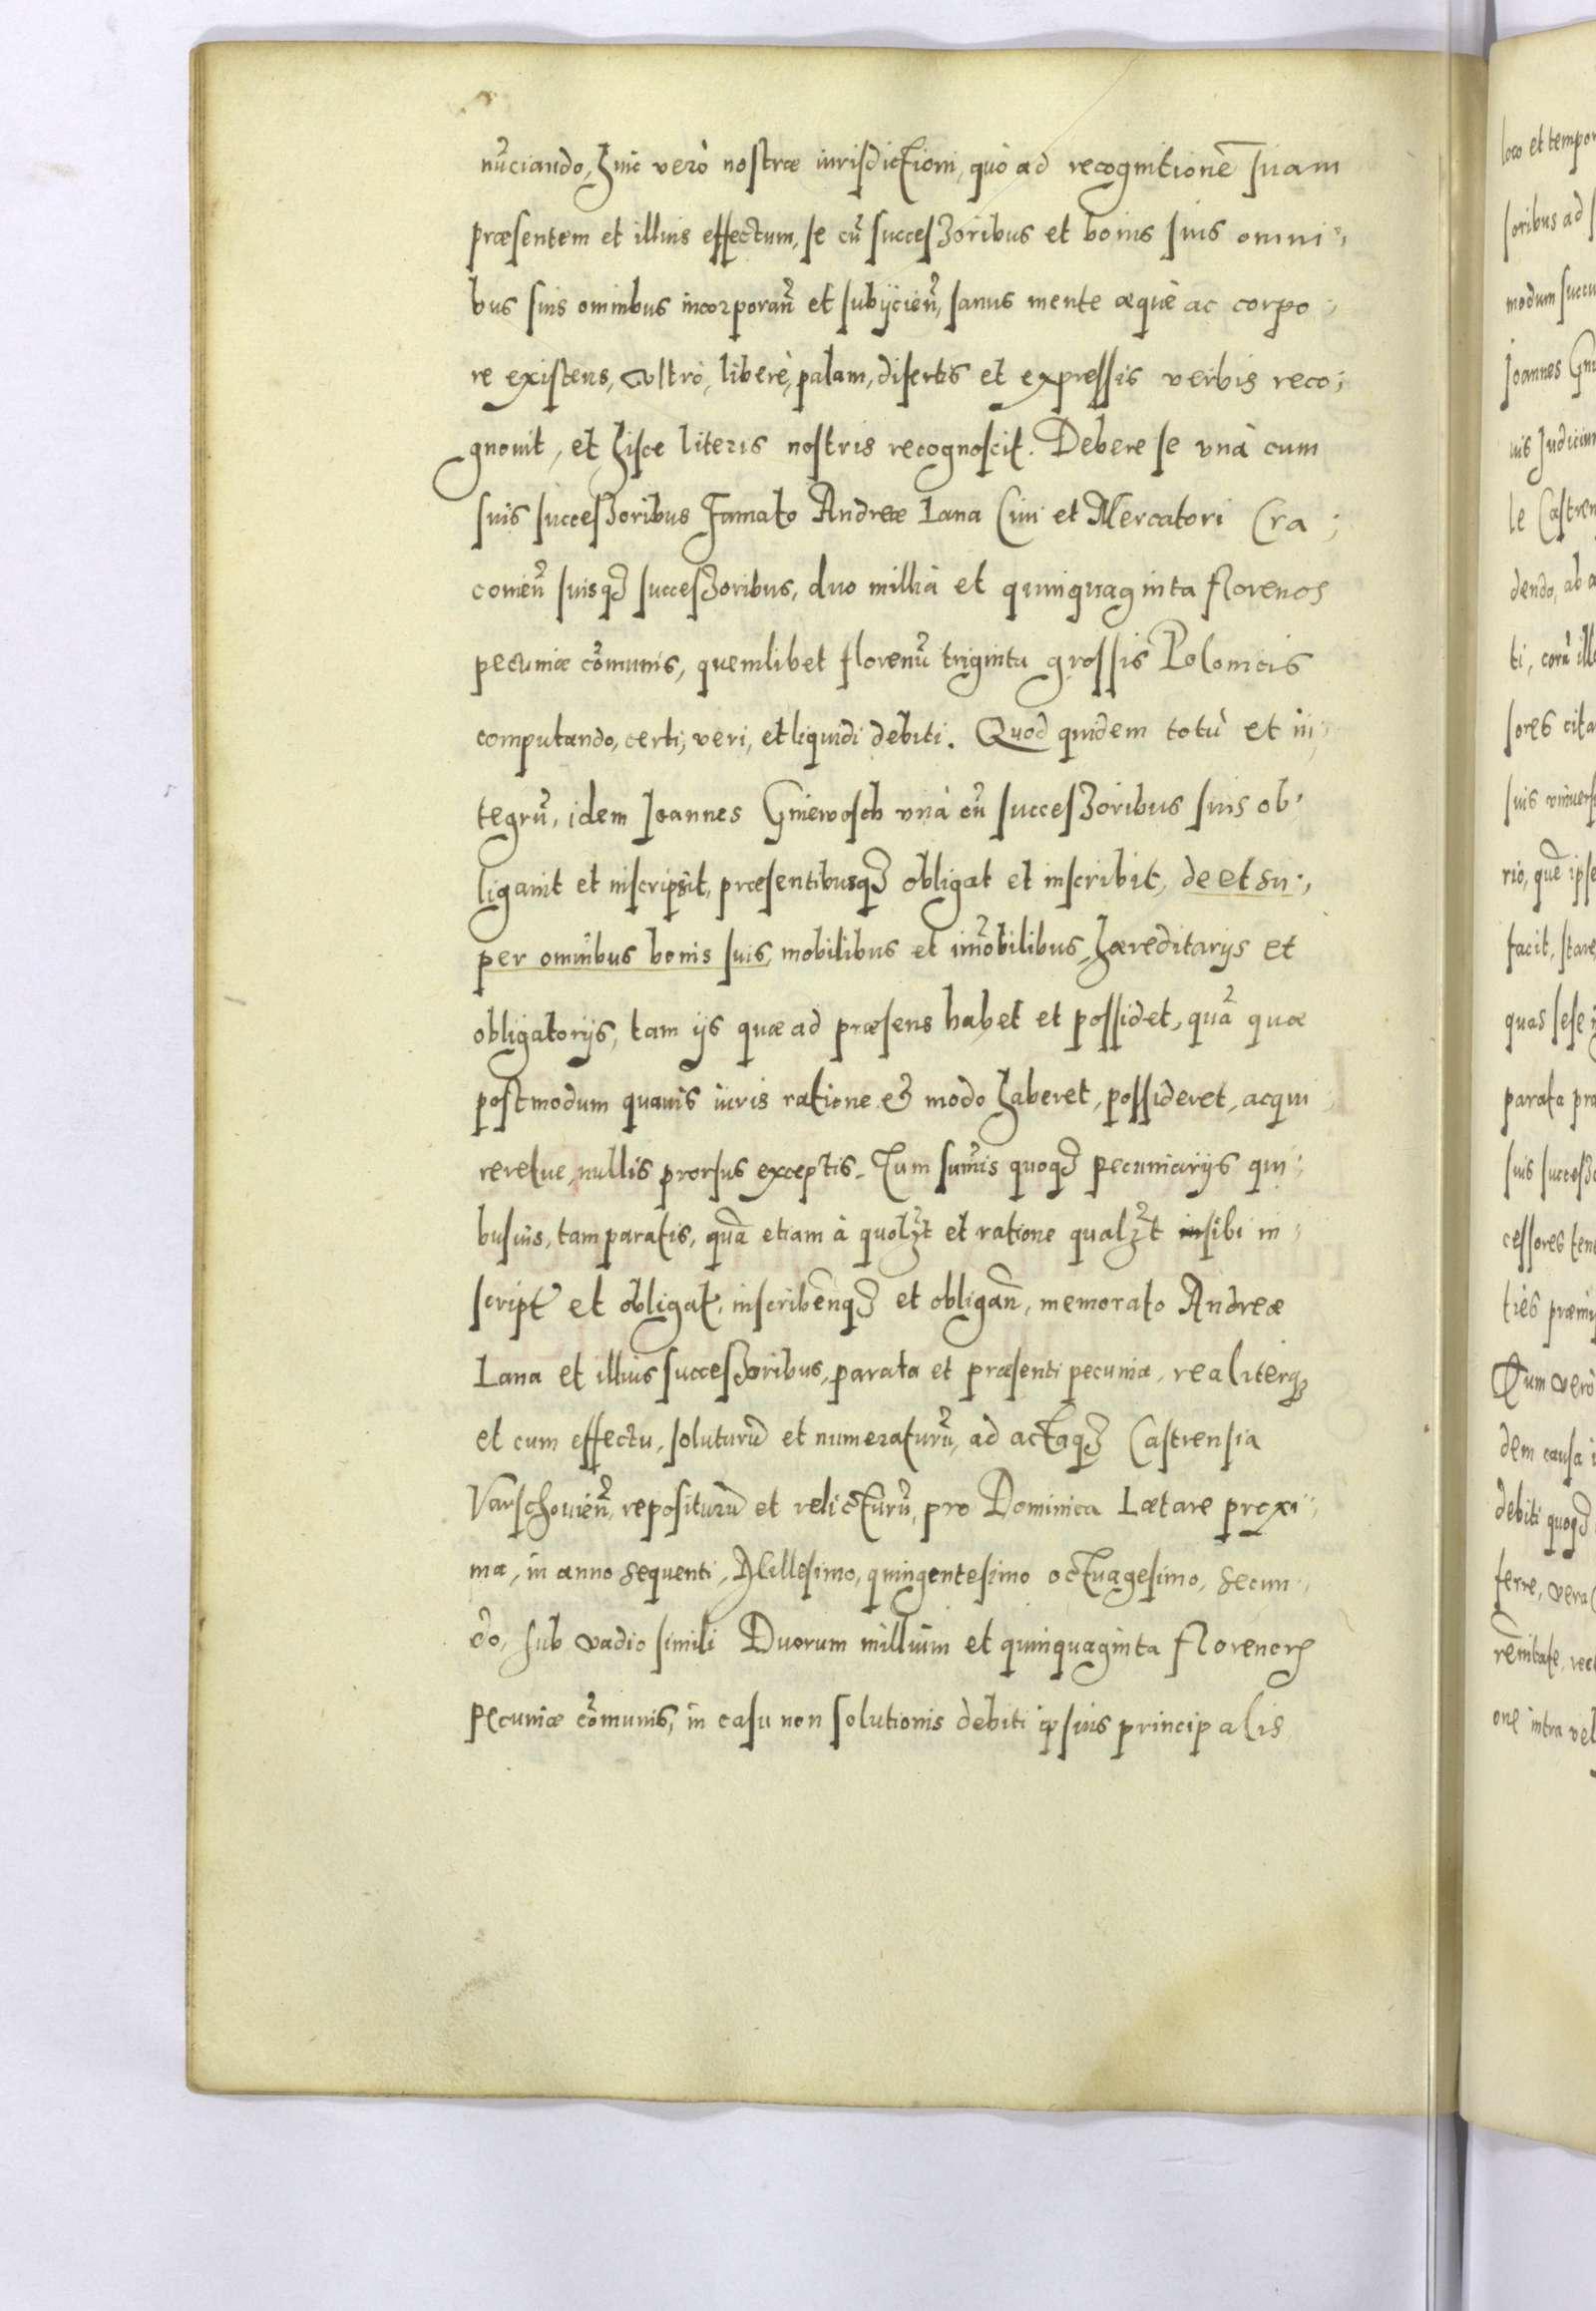 nũciando, huic verò nostræ iurisdictioni, quò ad recognitionẽ suam
præsentem et illius effectum, se cũ successoribus et bonis suis omni-
bus suis omnibus incorporañ et subijcieñ, sanus mente æquè ac corpo-
re existens, vltrò, liberè, palam, disertis et expressis verbis reco-
gnouit, et hisce literis nostris recognoscit. Debere se vnà cum
suis successoribus Famato Andreæ Lana Ciui et Mercatori Cra-
couieñ suisqȝ successoribus, duo millia et quinquaginta florenos
pecuniæ cõmunis, quemlibet florenũ triginta grossis Polonicis
computando, certi, veri, et liquidi debiti. Quod quidem totũ et in-
tegrũ, idem Joannes Gniewosch vnà cũ successoribus suis ob-
ligauit et inscripsit, præsentibusqȝ obligat et inscribit, de et su-
per omnibus bonis suis, mobilibus et imõbilibus, hæreditarijs et
obligatorijs, tam ijs quæ ad præsens habet et possidet, quã quæ
postmodum quauis iuris ratione & modo haberet, possideret, acqui
reretue, nullis prorsus exceptis. Tum sum̃is quoqȝ pecuniarijs qui-
busuis, tam paratis, quã etiam à quolȝt et ratione qualȝt in sibi in-
script̃ et obligat̃, inscribẽnqȝ et obligañ, memorato Andreæ
Lana et illius successoribus, parata et præsenti pecunia, realiterqȝ
et cum effectu, soluturũ et numeraturũ, ad actaqȝ Castrensia
Varschouieñ, repositurũ et relicturũ, pro Dominica Lætare proxi-
ma, in anno sequenti, Millesimo, quingentesimo octuagesimo, secun-
do, sub vadio simili Duorum millium et quinquaginta florenorꝝ
pecuniæ cõmunis, in casu non solutionis debiti ipsius principalis
loco et tempor
soribus ad s
modum succu
Joannes Gni
uis Judicium
le Castren
dendo, ab a
ti, corã illo
sores cita
suis vniuers
rio, quẽ ipse
facit, stare
quas sese
parata pra
suis success
cessores ten
ties præmi
Cum verò
dem causa i
debiti quoqȝ
ferre, vera
rẽnitate, rec
one intra vel